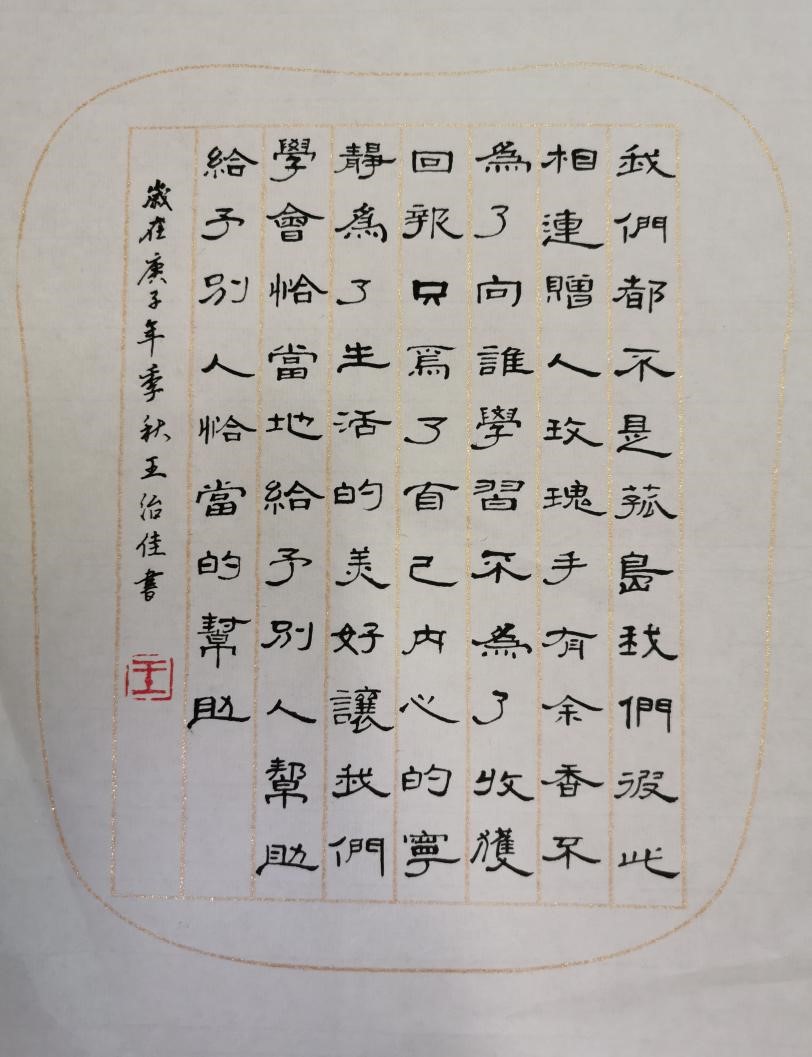 我們都不是菰島我們彼此
相連贈人玫瑰手有余香不
為了向誰學習不為了收獲
回報只為了自己内心的寧
靜為了生活的美好讓我們
學會恰當地給予別人幫助
給予別人恰當的幫助
歲在庚子年季秋王治佳書
王